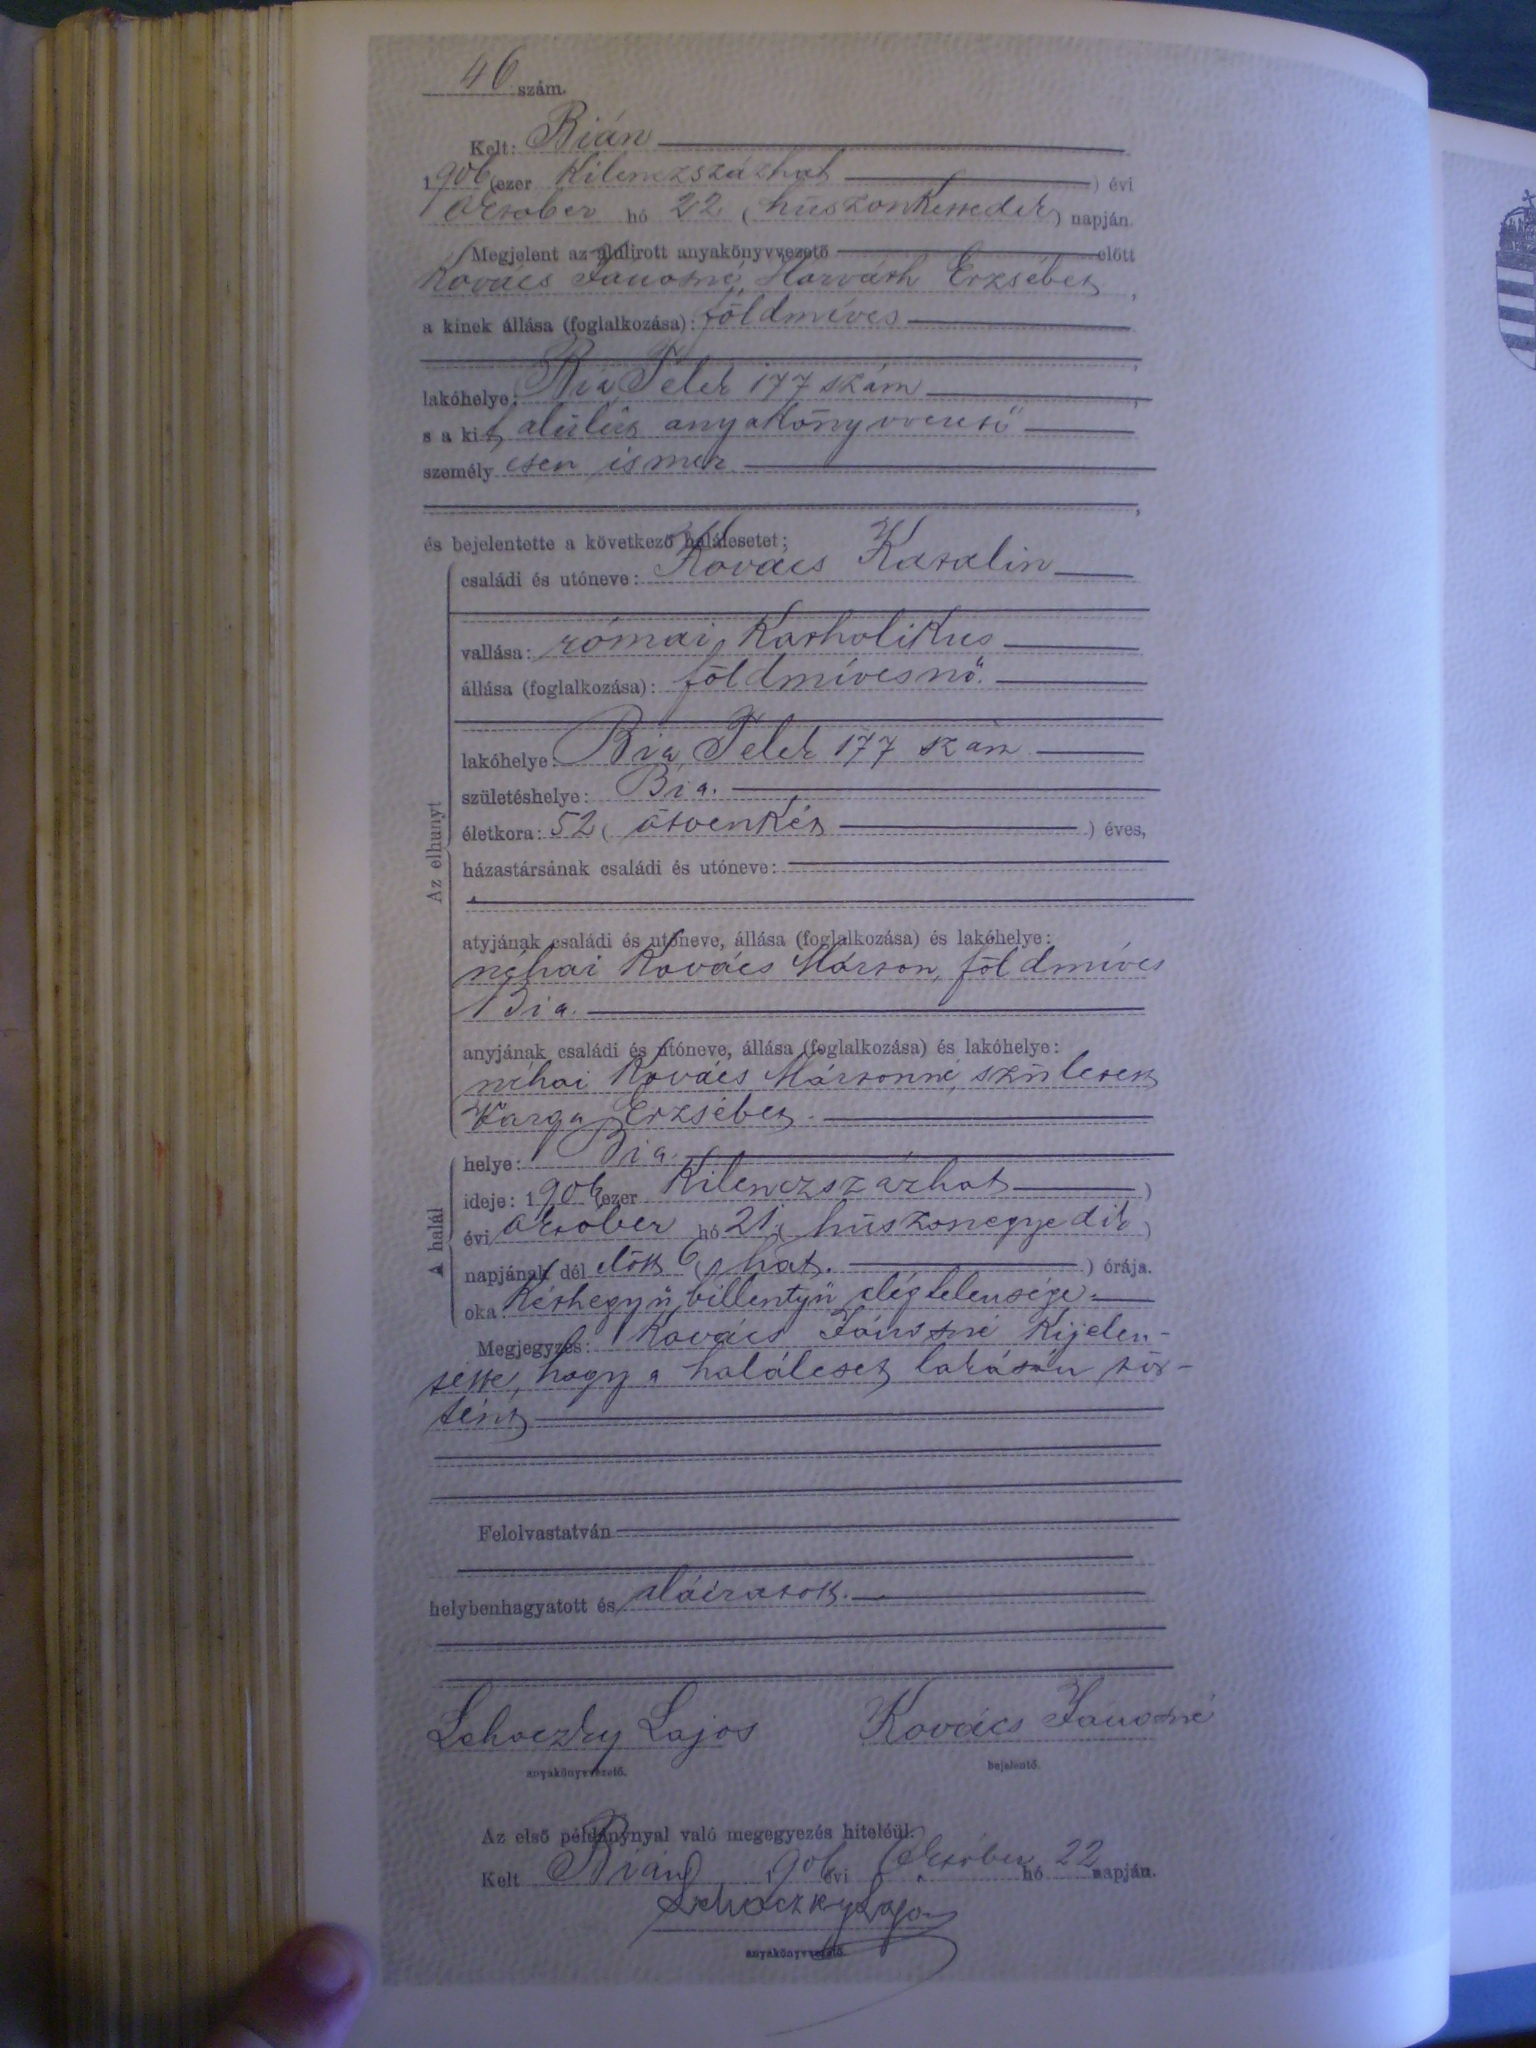 46 szám.
Kelt: Bián
1906 (ezer Kilenczszázhat ) évi
Október hó 22 ( huszonkettedik ) napján
Megjelent az alulirott anyakönyvvezető előtt
Kovács Jánosné, Horváth Erzsébet ,
a kinek állása (foglalkozása): földmíves
lakóhelye: Bia, Telek 177 szám ,
s a kit alulirt anyakönyvvezető
személy esen ismer
és bejelentette a következő halálesetet;
családi és utóneve: Kovács Katalin
vallása: római Katholikus
állása (foglalkozása): földmívesnő.
Az elhunyt
lakóhelye: Bia, Telek 177 szám
születéshelye: Bia.
életkora: 52 ( ötvenkét ) éves,
házastársának családi és utóneve:
atyjának családi és utóneve, állása (foglalkozása) és lakóhelye:
néhai Kovács Márton, földmíves
Bia.
anyjának családi és utóneve, állása (foglalkozása) és lakóhelye:
néhai Kovács Mártonné, született
Varga Erzsébet.
A halál
helye: Bia.
ideje: 1906 (ezer Kilenczszázhat )
évi Október hó 21 ( huszonegyedik )
napjának dél előtt 6 ( hat. ) órája.
oka Kéthegyű billentyű elégtelensége.
Megjegyzés: Kovács Jánosné Kijelen-
tette, hogy a haláleset lakásán tör-
tént
Felolvastatván
helybenhagyatott és aláiratott.
Lehoczky Lajos Kovács Jánosné
anyakönyvvezető. bejelentő.
Az első példánynyal való megegyezés hiteléül.
Kelt Bián 1906 évi Október hó 22 napján.
Lehoczky Lajos
anyakönyvvezető.